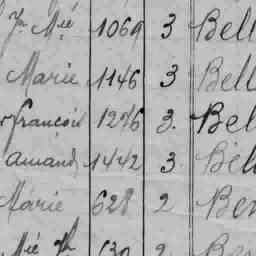 Jn Mie 1069 3 Bell
Marie 1146 3 Bell
françois 1276 3. Bel
amand 1442 3 Bel
Marie 628 2 Ber
Mie Jh 630 2 Ber